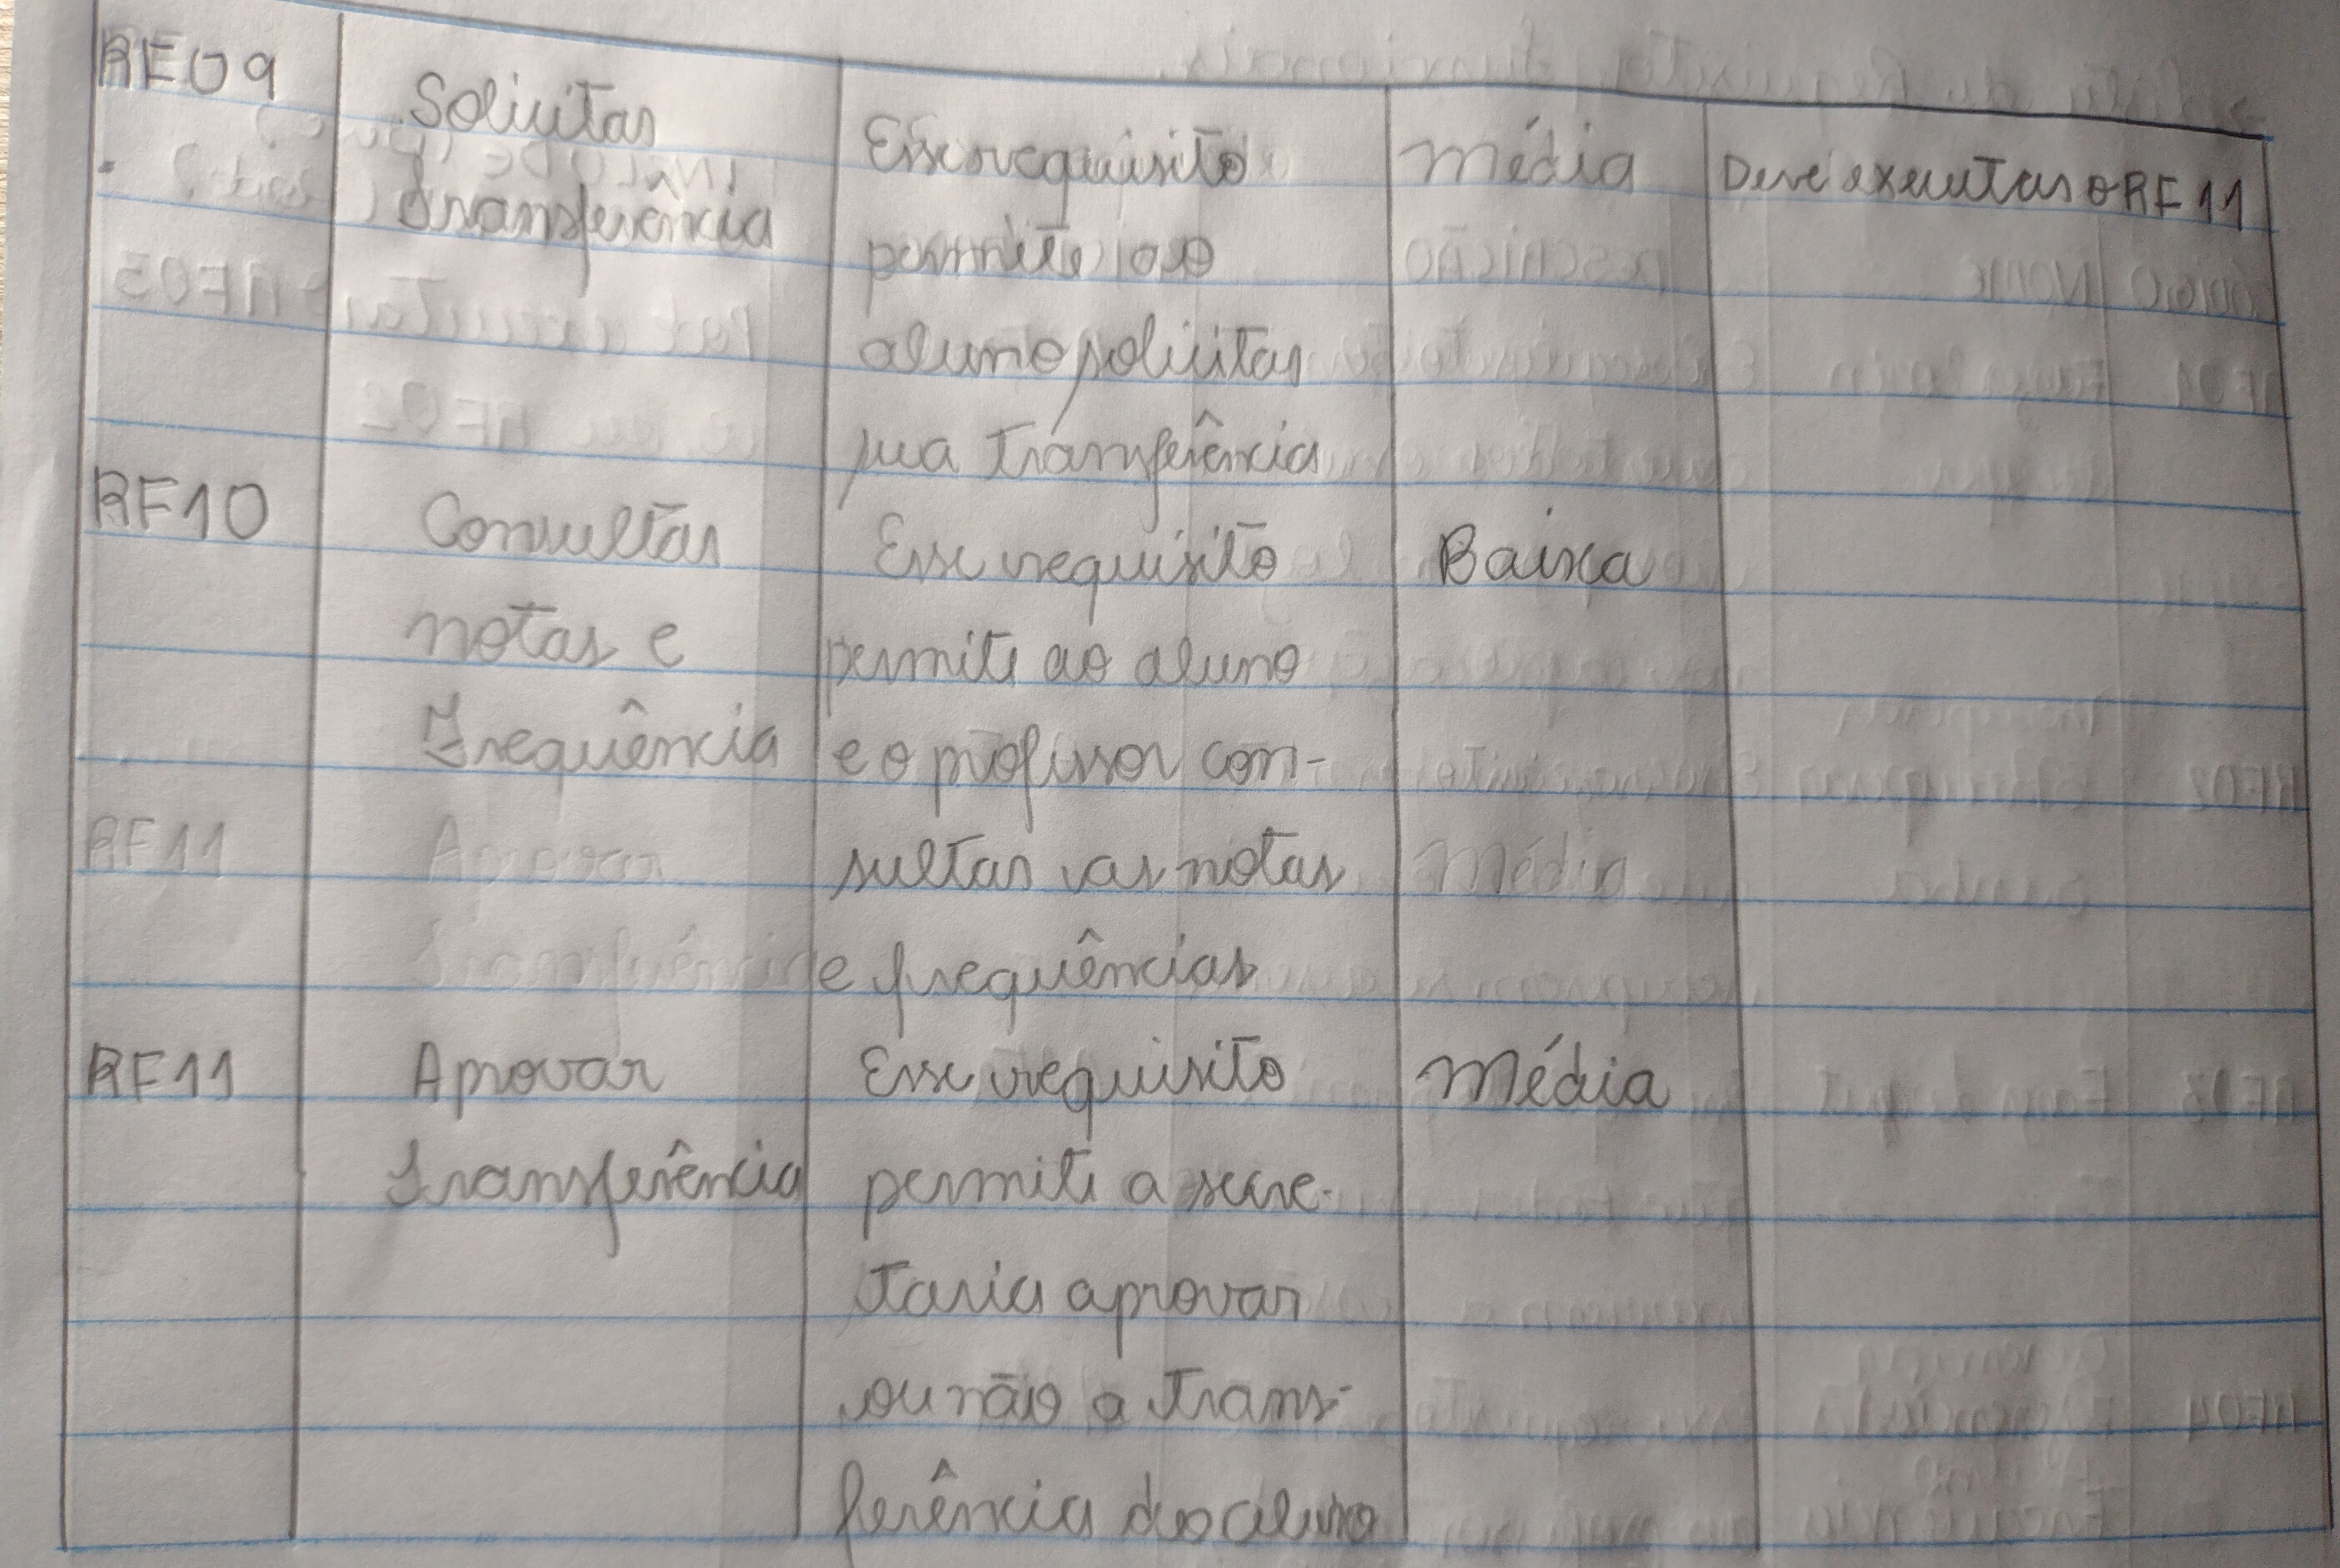 RF09
Solicitar
Transferência
Esse requisito
permite ao
aluno solicitar
sua transferência
Média
Deve executar o RF11
RF10
Consultar
notas e
Frequência
Esse requisito
permite ao aluno
e o professor con-
sultar as notas
e frequências
Baixa
RF11
Aprovar
Média
RF11
Aprovar
Transferência
Esse requisito
permite a secre-
taria aprovar
ou não a trans-
ferência do aluno
Média